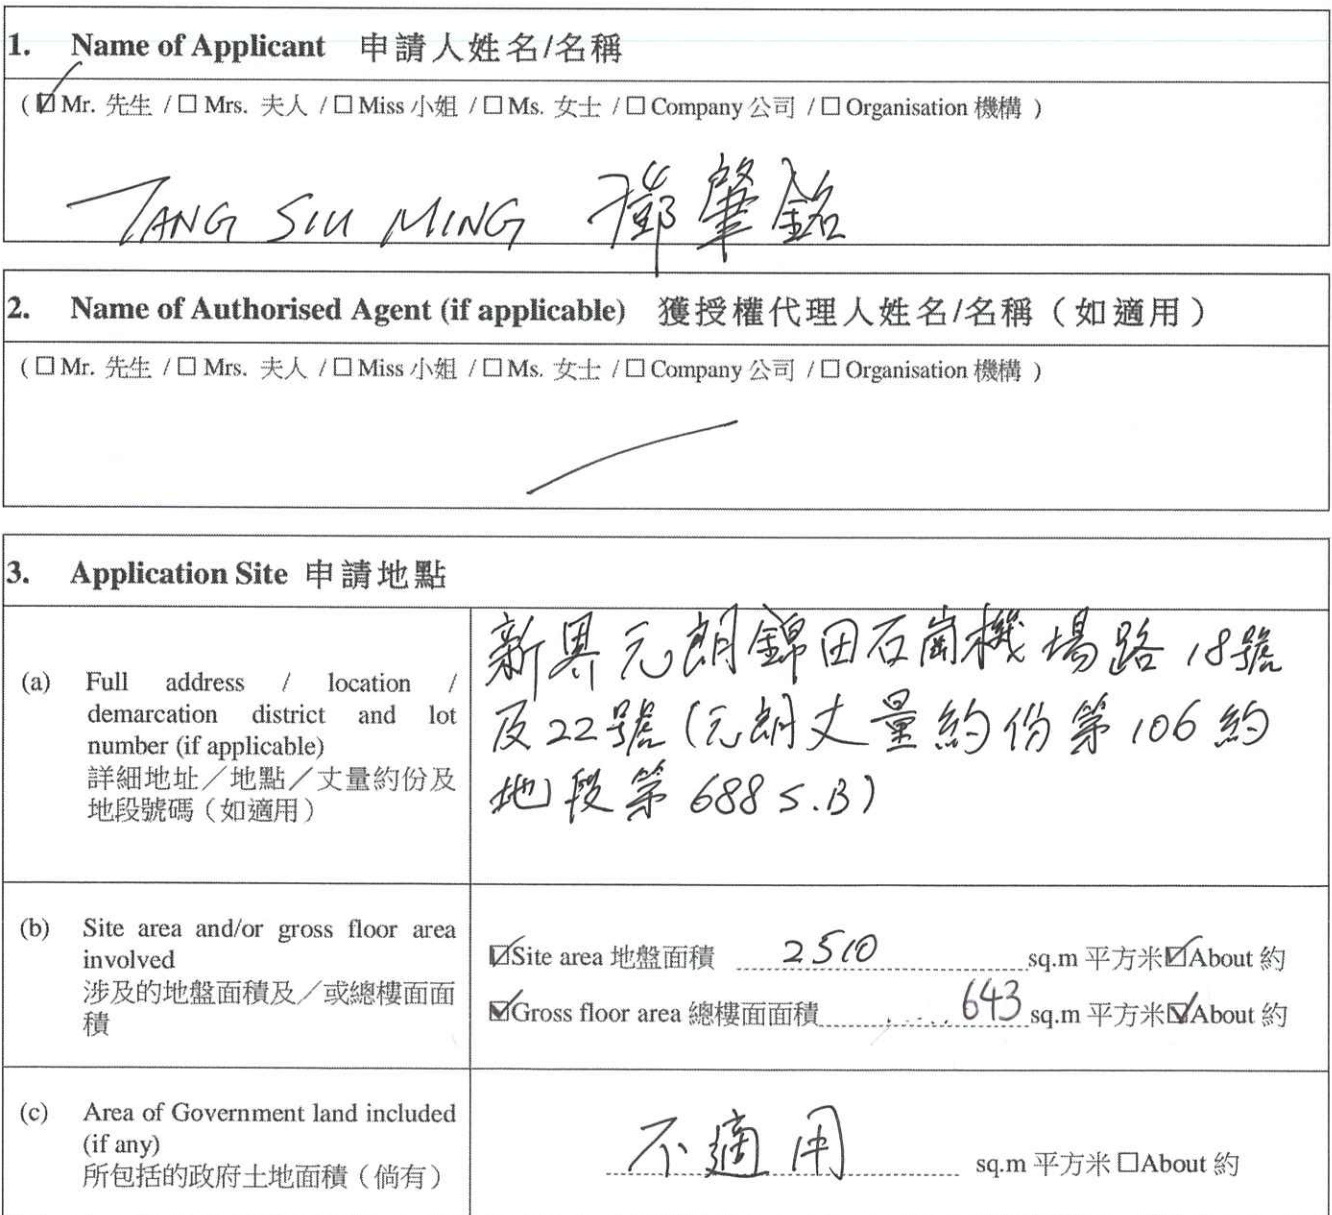 1. Name of Applicant 申請人姓名/名稱
( ☑ Mr. 先生 / ☐ Mrs. 夫人 / ☐ Miss 小姐 / ☐ Ms. 女士 / ☐ Company 公司 / ☐ Organisation 機構 )
TANG SIU MING 鄧肇銘
2. Name of Authorised Agent (if applicable) 獲授權代理人姓名/名稱（如適用）
( ☐ Mr. 先生 / ☐ Mrs. 夫人 / ☐ Miss 小姐 / ☐ Ms. 女士 / ☐ Company 公司 / ☐ Organisation 機構 )
3. Application Site 申請地點
(a) Full address / location /
demarcation district and lot
number (if applicable)
詳細地址／地點／丈量約份及
地段號碼（如適用）
新界元朗錦田石崗機場路18號
及22號(元朗丈量約份第106約
地段第688 S.B)
(b) Site area and/or gross floor area
involved
涉及的地盤面積及／或總樓面面
積
☑Site area 地盤面積 2510 sq.m 平方米☑About 約
☑Gross floor area 總樓面面積 643 sq.m 平方米☑About 約
(c) Area of Government land included
(if any)
所包括的政府土地面積（倘有）
不適用 sq.m 平方米 ☐About 約